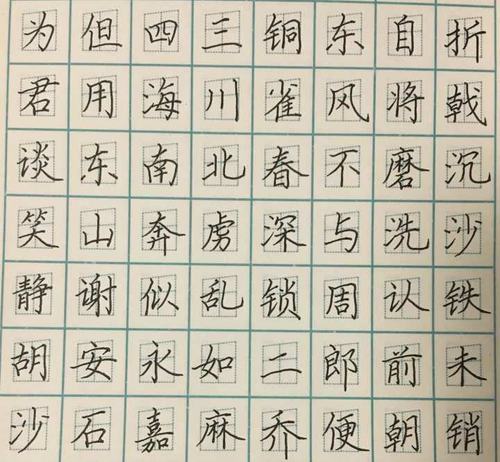 折戟沉沙铁未销
自将磨洗认前朝
东风不与周郎便
铜雀春深锁二乔
三川北虏乱如麻
四海南奔似永嘉
但用东山谢安石
为君谈笑静胡沙